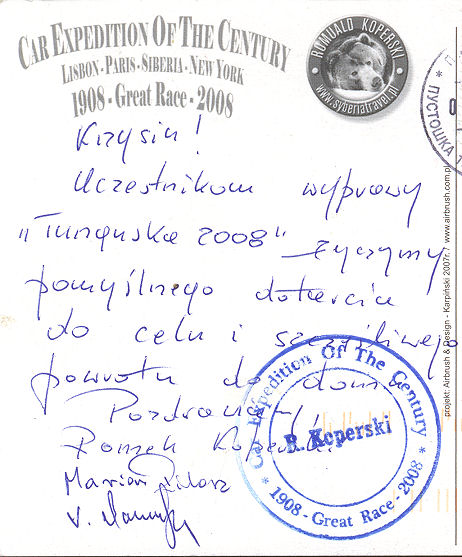 CAR EXPEDITION OF THE CENTURY
LISBON - PARIS - SIBERIA - NEW YORK
1908 - Great Race - 2008
ROMUALD KOPERSKI
www.syberiatravel.pl
* ПУСТОШКА
Krzysiu!
Uczestnikom wyprawy
"Tunguska 2008" życzymy
pomyślnego dotarcia
do celu i szczęśliwego
powrotu do domu
Pozdrawiamy!
Romek Koperski
Marian Pilorz
Car Expedition Of The Century
R. Koperski
* 1908 - Great Race - 2008 *
projekt: Airbrush & Design - Karpiński 2007r. www.airbrush.com.pl